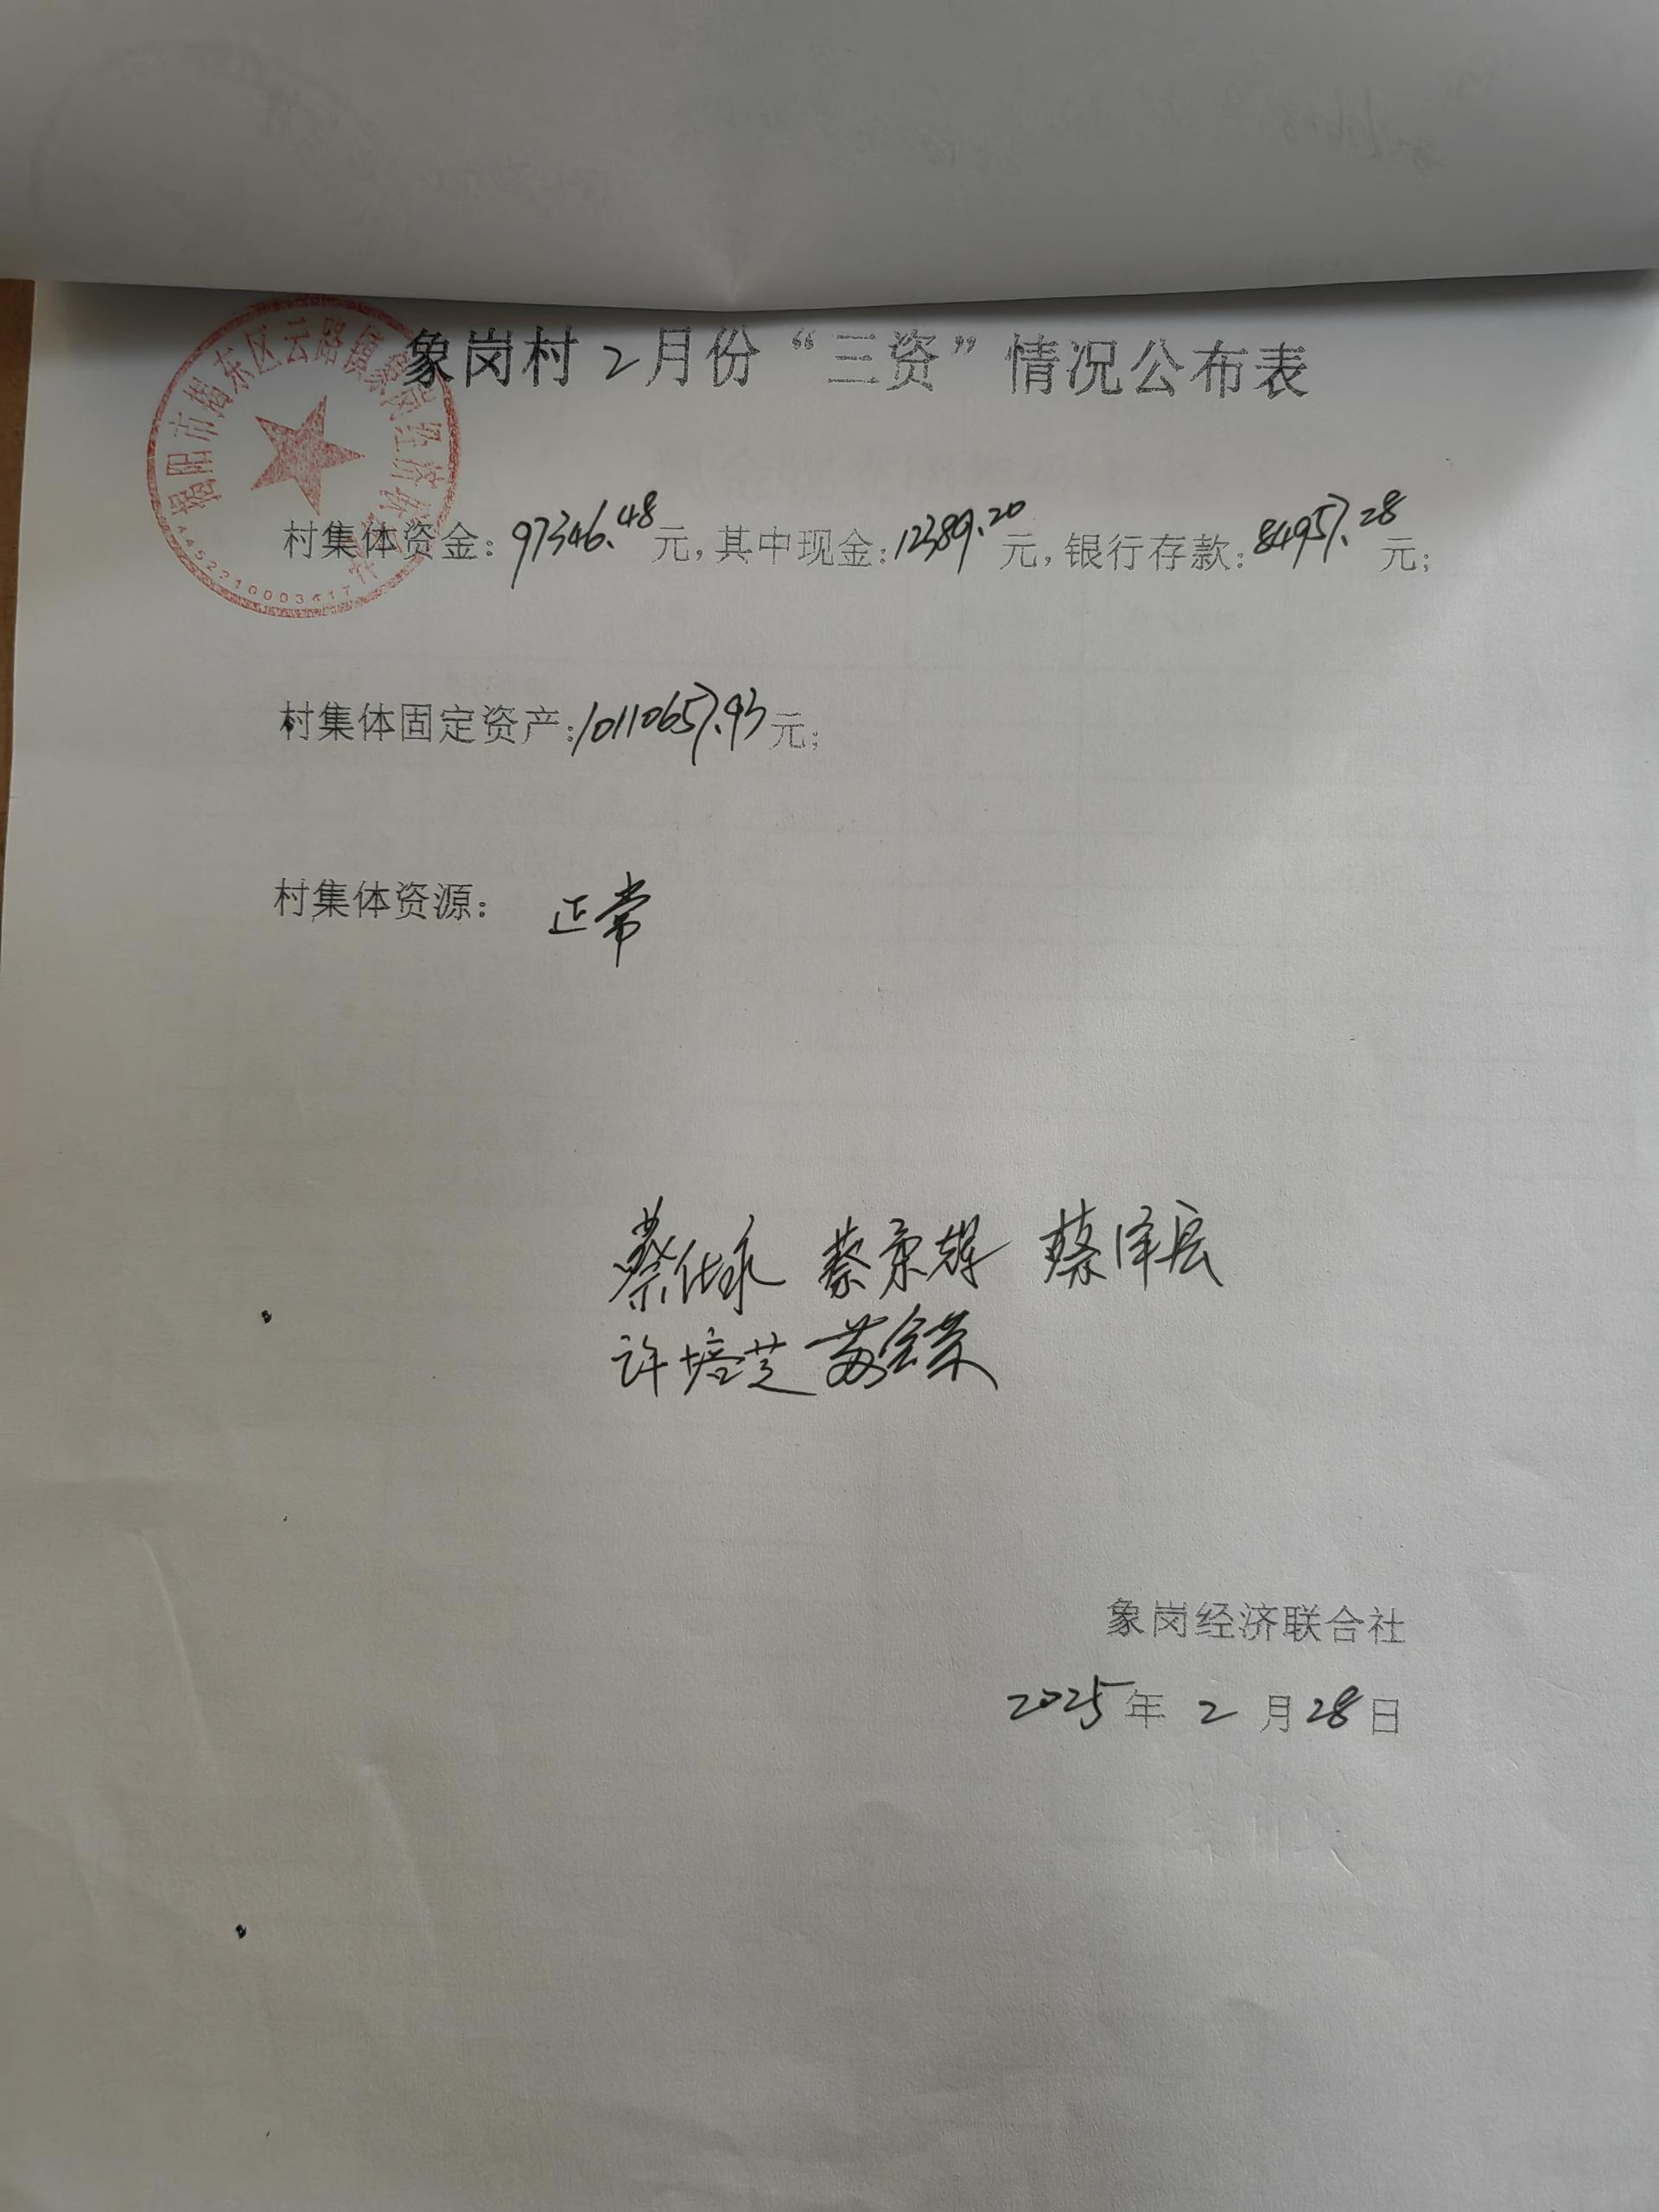 象岗村2月份“三资”情况公布表
揭阳市揭东区云路镇象岗经济联合社
4452210003617
村集体资金：97346.48元，其中现金：12389.20元，银行存款：84957.28元；
村集体固定资产：10110657.93元；
村集体资源： 正常
蔡 蔡 蔡泽
许培芝 苏
象岗经济联合社
2025年 2 月28日